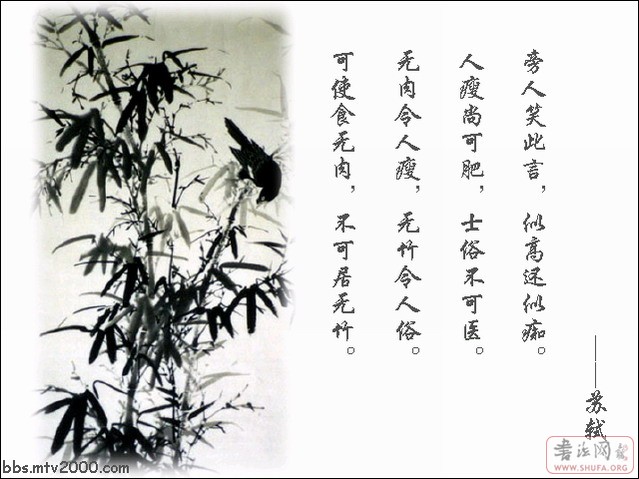 可使食无肉，不可居无竹。
无肉令人瘦，无竹令人俗。
人瘦尚可肥，士俗不可医。
旁人笑此言，似高还似痴。
——苏轼
bbs.mtv2000.com
书法网报
WWW.SHUFA.ORG